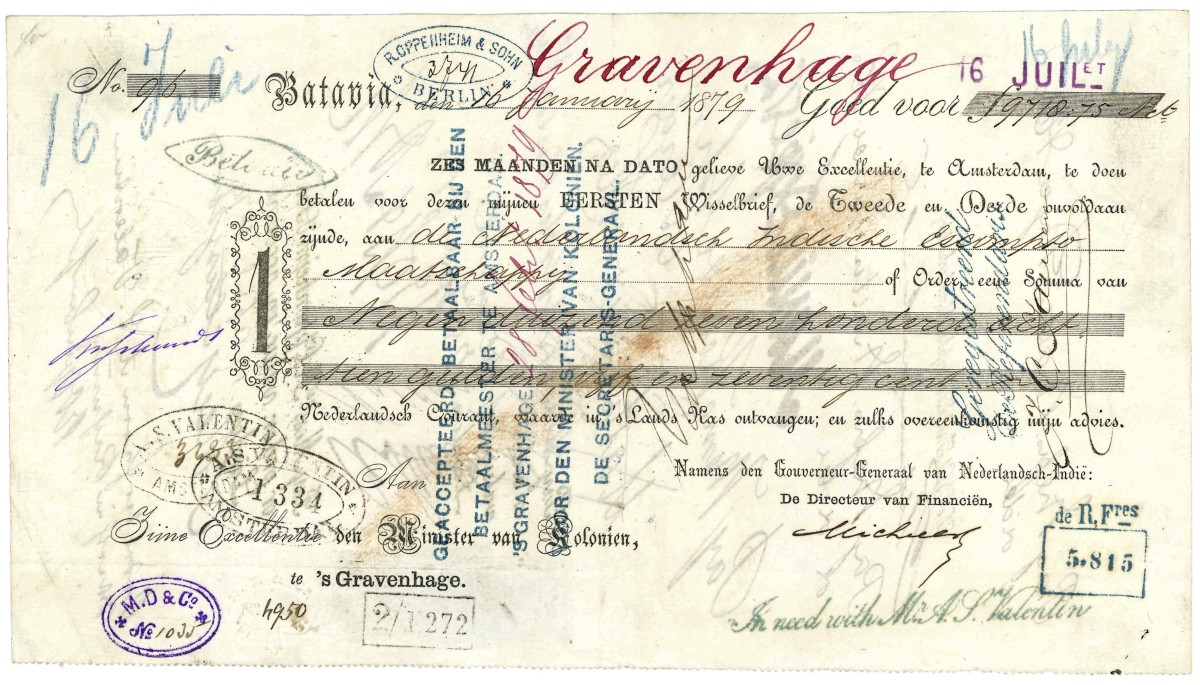 16 Juli
R. OPPENHEIM & SOHN
3741
BERLIN
Gravenhage
16 JUILET
No. 96
Batavia, den 16 Januarij 1879
Goed voor f 9718.75
ZES MAANDEN NA DATO gelieve Uwe Excellentie, te Amsterdam, te doen
betalen voor dezen mijnen EERSTEN Wisselbrief, de Tweede en Derde onvoldaan
zijnde, aan de Nederlandsch Indische Escompto
Maatschappij of Order, eene Somma van
Negen duizend zeven honderd acht
tien gulden vijf en zeventig cent
Nederlandsch Courant, waarde in 's Lands Kas ontvangen; en zulks overeenkomstig mijn advies.
1
GEACCEPTEERD, BETAALBAAR BIJ DEN
BETAALMEESTER TE AMSTERDAM
'S GRAVENHAGE 1879
VOOR DEN MINISTER VAN KOLONIEN.
DE SECRETARIS-GENERAAL.
Namens den Gouverneur-Generaal van Nederlandsch-Indië:
De Directeur van Financiën,
A.S. VALENTIN
AMS
A.S. VALENTIN
1334
AMSTERDAM
Aan
Zijne Excellentie den Minister van Kolonien,
te 's Gravenhage.
de R. Fres
5.815
M.D & Co
No 1035
4950
2/1272
In need with Mr. A. S. Valentin